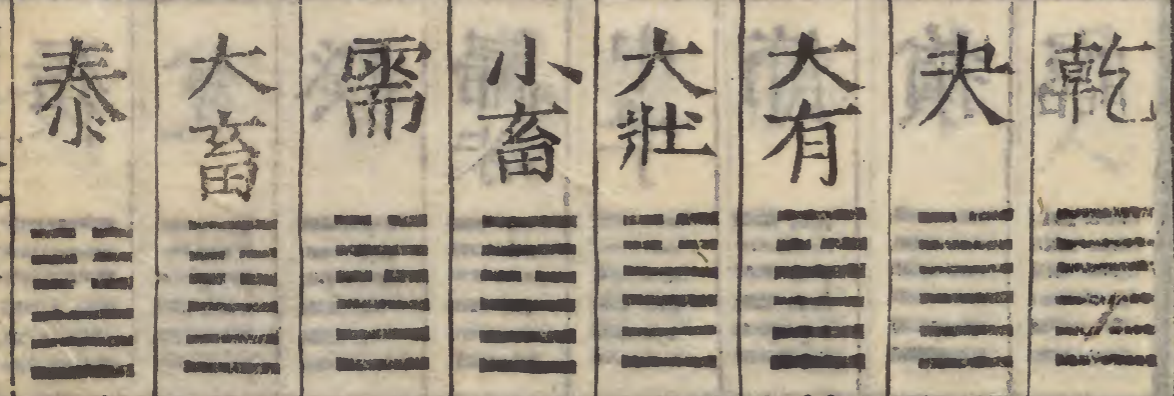 乾
夬
大有
大壯
小畜
需
大畜
泰